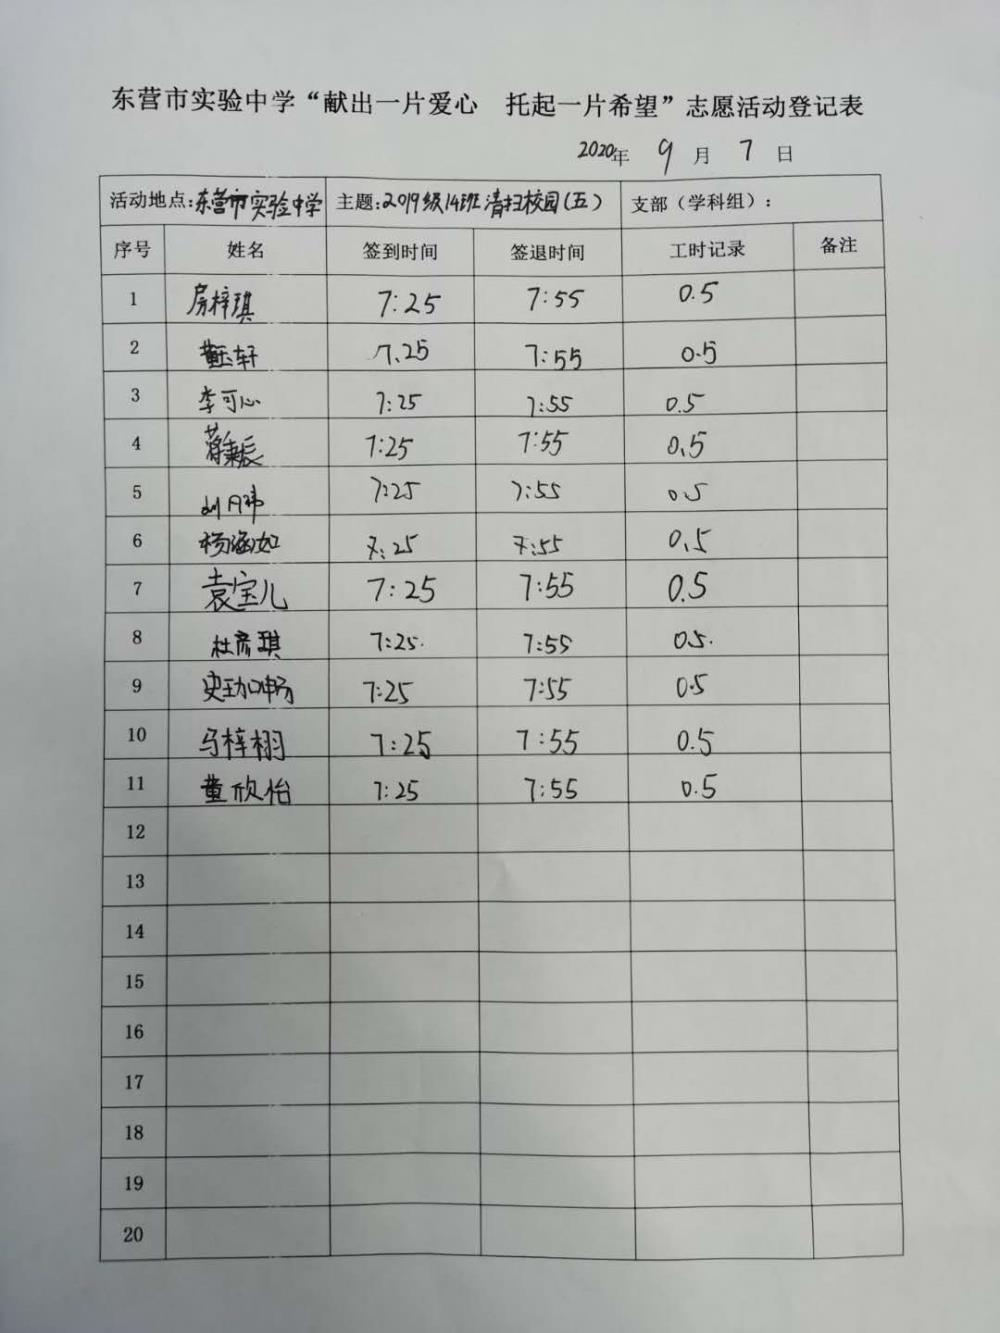 东营市实验中学“献出一片爱心 托起一片希望”志愿活动登记表
2020年 9 月 7 日
活动地点:东营市实验中学 主题:2019级14班清扫校园(五) 支部（学科组）:
序号 姓名 签到时间 签退时间 工时记录 备注
1 房梓琪 7:25 7:55 0.5
2 7.25 7:55 0.5
3 李可心 7:25 7:55 0.5
4 7:25 7:55 0.5
5 7:25 7:55 0.5
6 杨涵如 7:25 7:55 0.5
7 袁宝儿 7:25 7:55 0.5
8 杜彦琪 7:25. 7:55 0.5.
9 7:25 7:55 0.5
10 马梓栩 7:25 7:55 0.5
11 董欣怡 7:25 7:55 0.5
12
13
14
15
16
17
18
19
20